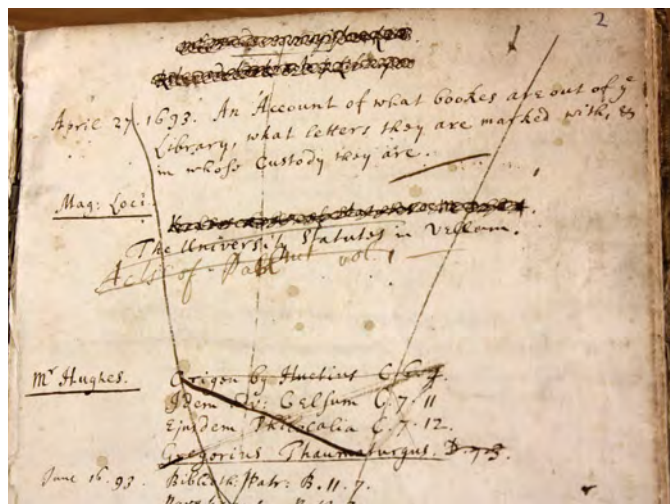 2
April 27. 1693. An Account of what bookes are out of yͤ
Library, what letters they are marked with, &
in whose Custody they are.
Mag: Loci.
The University Statutes in Vellum.
Acts of Parlmt vol. 1
Mr Hughes.
Origen by Huetius C. 6. 9.
Idem adv: Celsum C. 7. 11
Ejusdem Philocalia C. 7. 12.
Gregorius Thaumaturgus. D. 7. 3.
June 16. 93. Biblioth: Patr: B. 11. 7.